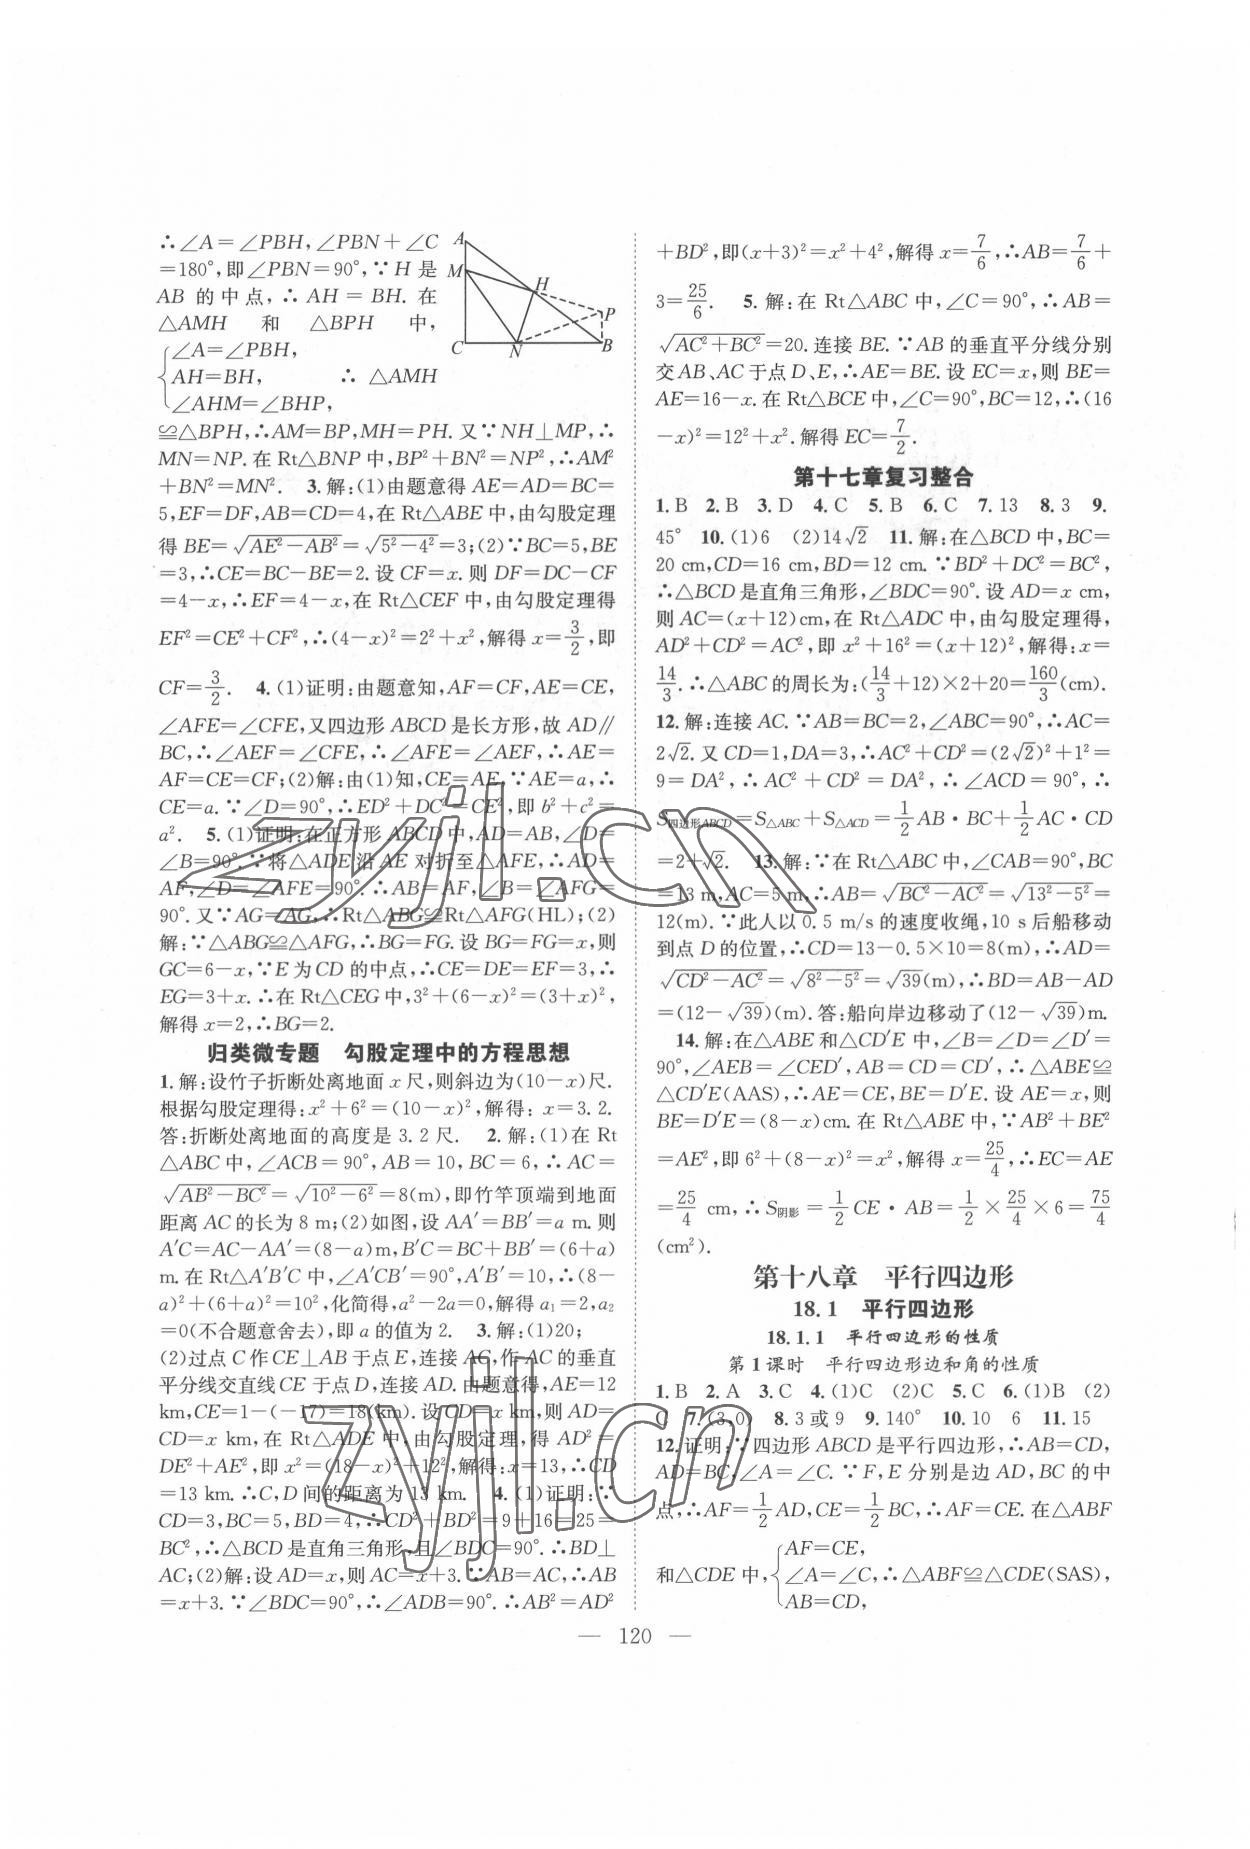 ∴∠A=∠PBH,∠PBN+∠C
=180°,即∠PBN=90°,∵H 是
AB 的中点,∴AH=BH. 在
△AMH 和 △BPH 中,
∠A=∠PBH,
AH=BH, ∴ △AMH
∠AHM=∠BHP,
A
M
H
P
C
N
B
≌△BPH,∴AM=BP,MH=PH. 又∵NH⊥MP,∴
MN=NP. 在 Rt△BNP 中,BP²+BN²=NP²,∴AM²
+BN²=MN². 3. 解:(1)由题意得 AE=AD=BC=
5,EF=DF,AB=CD=4,在 Rt△ABE 中,由勾股定理
得 BE=√(AE²-AB²)=√(5²-4²)=3;(2)∵BC=5,BE
=3,∴CE=BC-BE=2. 设 CF=x. 则 DF=DC-CF
=4-x,∴EF=4-x,在 Rt△CEF 中,由勾股定理得
EF²=CE²+CF²,∴(4-x)²=2²+x²,解得 x=3/2,即
CF=3/2. 4. (1)证明:由题意知,AF=CF,AE=CE,
∠AFE=∠CFE,又四边形 ABCD 是长方形,故 AD∥
BC,∴∠AEF=∠CFE,∴∠AFE=∠AEF,∴AE=
AF=CE=CF;(2)解:由(1)知,CE=AE,∵AE=a,∴
CE=a. ∵∠D=90°,∴ED²+DC²=CE²,即 b²+c²=
a². 5. (1)证明:在正方形 ABCD 中,AD=AB,∠D=
∠B=90°,∵将△ADE 沿 AE 对折至△AFE,∴AD=
AF,∠D=∠AFE=90°,∴AB=AF,∠B=∠AFG=
90°. 又∵AG=AG,∴Rt△ABG≌Rt△AFG(HL);(2)
解:∵△ABG≌△AFG,∴BG=FG. 设 BG=FG=x,则
GC=6-x,∵E 为 CD 的中点,∴CE=DE=EF=3,∴
EG=3+x. ∴在 Rt△CEG 中,3²+(6-x)²=(3+x)²,
解得 x=2,∴BG=2.
归类微专题 勾股定理中的方程思想
1. 解:设竹子折断处离地面 x 尺,则斜边为(10-x)尺.
根据勾股定理得:x²+6²=(10-x)²,解得: x=3.2.
答:折断处离地面的高度是 3.2 尺. 2. 解:(1)在 Rt
△ABC 中,∠ACB=90°,AB=10,BC=6,∴AC=
√(AB²-BC²)=√(10²-6²)=8(m),即竹竿顶端到地面
距离 AC 的长为 8 m;(2)如图,设 AA′=BB′=a m. 则
A′C=AC-AA′=(8-a)m,B′C=BC+BB′=(6+a)
m. 在 Rt△A′B′C 中,∠A′CB′=90°,A′B′=10,∴(8-
a)²+(6+a)²=10²,化简得,a²-2a=0,解得 a₁=2,a₂
=0(不合题意舍去),即 a 的值为 2. 3. 解:(1)20;
(2)过点 C 作 CE⊥AB 于点 E,连接 AC,作 AC 的垂直
平分线交直线 CE 于点 D,连接 AD. 由题意得,AE=12
km,CE=1-(-17)=18(km). 设 CD=x km,则 AD=
CD=x km,在 Rt△ADE 中,由勾股定理,得 AD²=
DE²+AE²,即 x²=(18-x)²+12²,解得:x=13,∴CD
=13 km. ∴C,D 间的距离为 13 km. 4. (1)证明:∵
CD=3,BC=5,BD=4,∴CD²+BD²=9+16=25=
BC²,∴△BCD 是直角三角形,且∠BDC=90°. ∴BD⊥
AC;(2)解:设 AD=x,则 AC=x+3. ∵AB=AC,∴AB
=x+3. ∵∠BDC=90°,∴∠ADB=90°. ∴AB²=AD²
+BD²,即(x+3)²=x²+4²,解得 x=7/6,∴AB=7/6+
3=25/6. 5. 解:在 Rt△ABC 中,∠C=90°,∴AB=
√(AC²+BC²)=20. 连接 BE. ∵AB 的垂直平分线分别
交 AB、AC 于点 D、E,∴AE=BE. 设 EC=x,则 BE=
AE=16-x. 在 Rt△BCE 中,∠C=90°,BC=12,∴(16
-x)²=12²+x². 解得 EC=7/2.
第十七章复习整合
1. B 2. B 3. D 4. C 5. B 6. C 7. 13 8. 3 9.
45° 10. (1)6 (2)14√2 11. 解:在△BCD 中,BC=
20 cm,CD=16 cm,BD=12 cm. ∵BD²+DC²=BC²,
∴△BCD 是直角三角形,∠BDC=90°. 设 AD=x cm,
则 AC=(x+12)cm,在 Rt△ADC 中,由勾股定理得,
AD²+CD²=AC²,即 x²+16²=(x+12)²,解得:x=
14/3. ∴△ABC 的周长为:(14/3+12)×2+20=160/3(cm).
12. 解:连接 AC. ∵AB=BC=2,∠ABC=90°,∴AC=
2√2. 又 CD=1,DA=3,∴AC²+CD²=(2√2)²+1²=
9=DA²,∴AC²+CD²=DA²,∴∠ACD=90°,∴
S四边形ABCD=S△ABC+S△ACD=1/2AB·BC+1/2AC·CD
=2+√2. 13. 解:∵在 Rt△ABC 中,∠CAB=90°,BC
=13 m,AC=5 m,∴AB=√(BC²-AC²)=√(13²-5²)=
12(m). ∵此人以 0.5 m/s 的速度收绳,10 s 后船移动
到点 D 的位置,∴CD=13-0.5×10=8(m),∴AD=
√(CD²-AC²)=√(8²-5²)=√39(m),∴BD=AB-AD
=(12-√39)(m). 答:船向岸边移动了(12-√39)m.
14. 解:在△ABE 和△CD′E 中,∠B=∠D=∠D′=
90°,∠AEB=∠CED′,AB=CD=CD′,∴△ABE≌
△CD′E(AAS),∴AE=CE,BE=D′E. 设 AE=x,则
BE=D′E=(8-x)cm. 在 Rt△ABE 中,∵AB²+BE²
=AE²,即 6²+(8-x)²=x²,解得 x=25/4,∴EC=AE
=25/4 cm,∴S阴影=1/2CE·AB=1/2×25/4×6=75/4
(cm²).
第十八章 平行四边形
18.1 平行四边形
18.1.1 平行四边形的性质
第 1 课时 平行四边形边和角的性质
1. B 2. A 3. C 4. (1)C (2)C 5. C 6. (1)B (2)
C 7. (3,0) 8. 3 或 9 9. 140° 10. 10 6 11. 15
12. 证明:∵四边形 ABCD 是平行四边形,∴AB=CD,
AD=BC,∠A=∠C. ∵F,E 分别是边 AD,BC 的中
点,∴AF=1/2AD,CE=1/2BC,∴AF=CE. 在△ABF
和△CDE 中,
AF=CE,
∠A=∠C, ∴△ABF≌△CDE(SAS),
AB=CD,
— 120 —
zyjl.cn
zyjl.cn